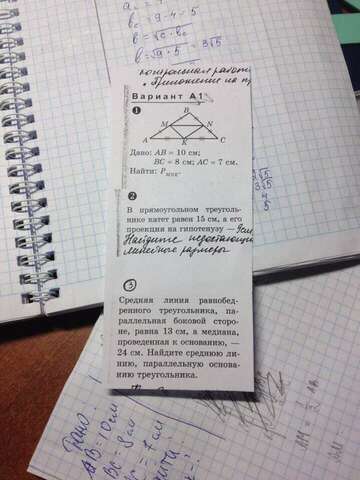 b = √9·5 = 3√5
контрольная работа
Вариант А1
1
B
M N
A K C
Дано: AB = 10 см;
BC = 8 см; AC = 7 см.
Найти: P
2
В прямоугольном треуголь-
нике катет равен 15 см, а его
проекция на гипотенузу — 9см
Найдите недостающие
линейные размеры
3
Средняя линия равнобед-
ренного треугольника, па-
раллельная боковой сторо-
не, равна 13 см, а медиана,
проведенная к основанию, —
24 см. Найдите среднюю ли-
нию, параллельную основа-
нию треугольника.
Дано:
AB = 10 см
BC = 8 см
= 7 см